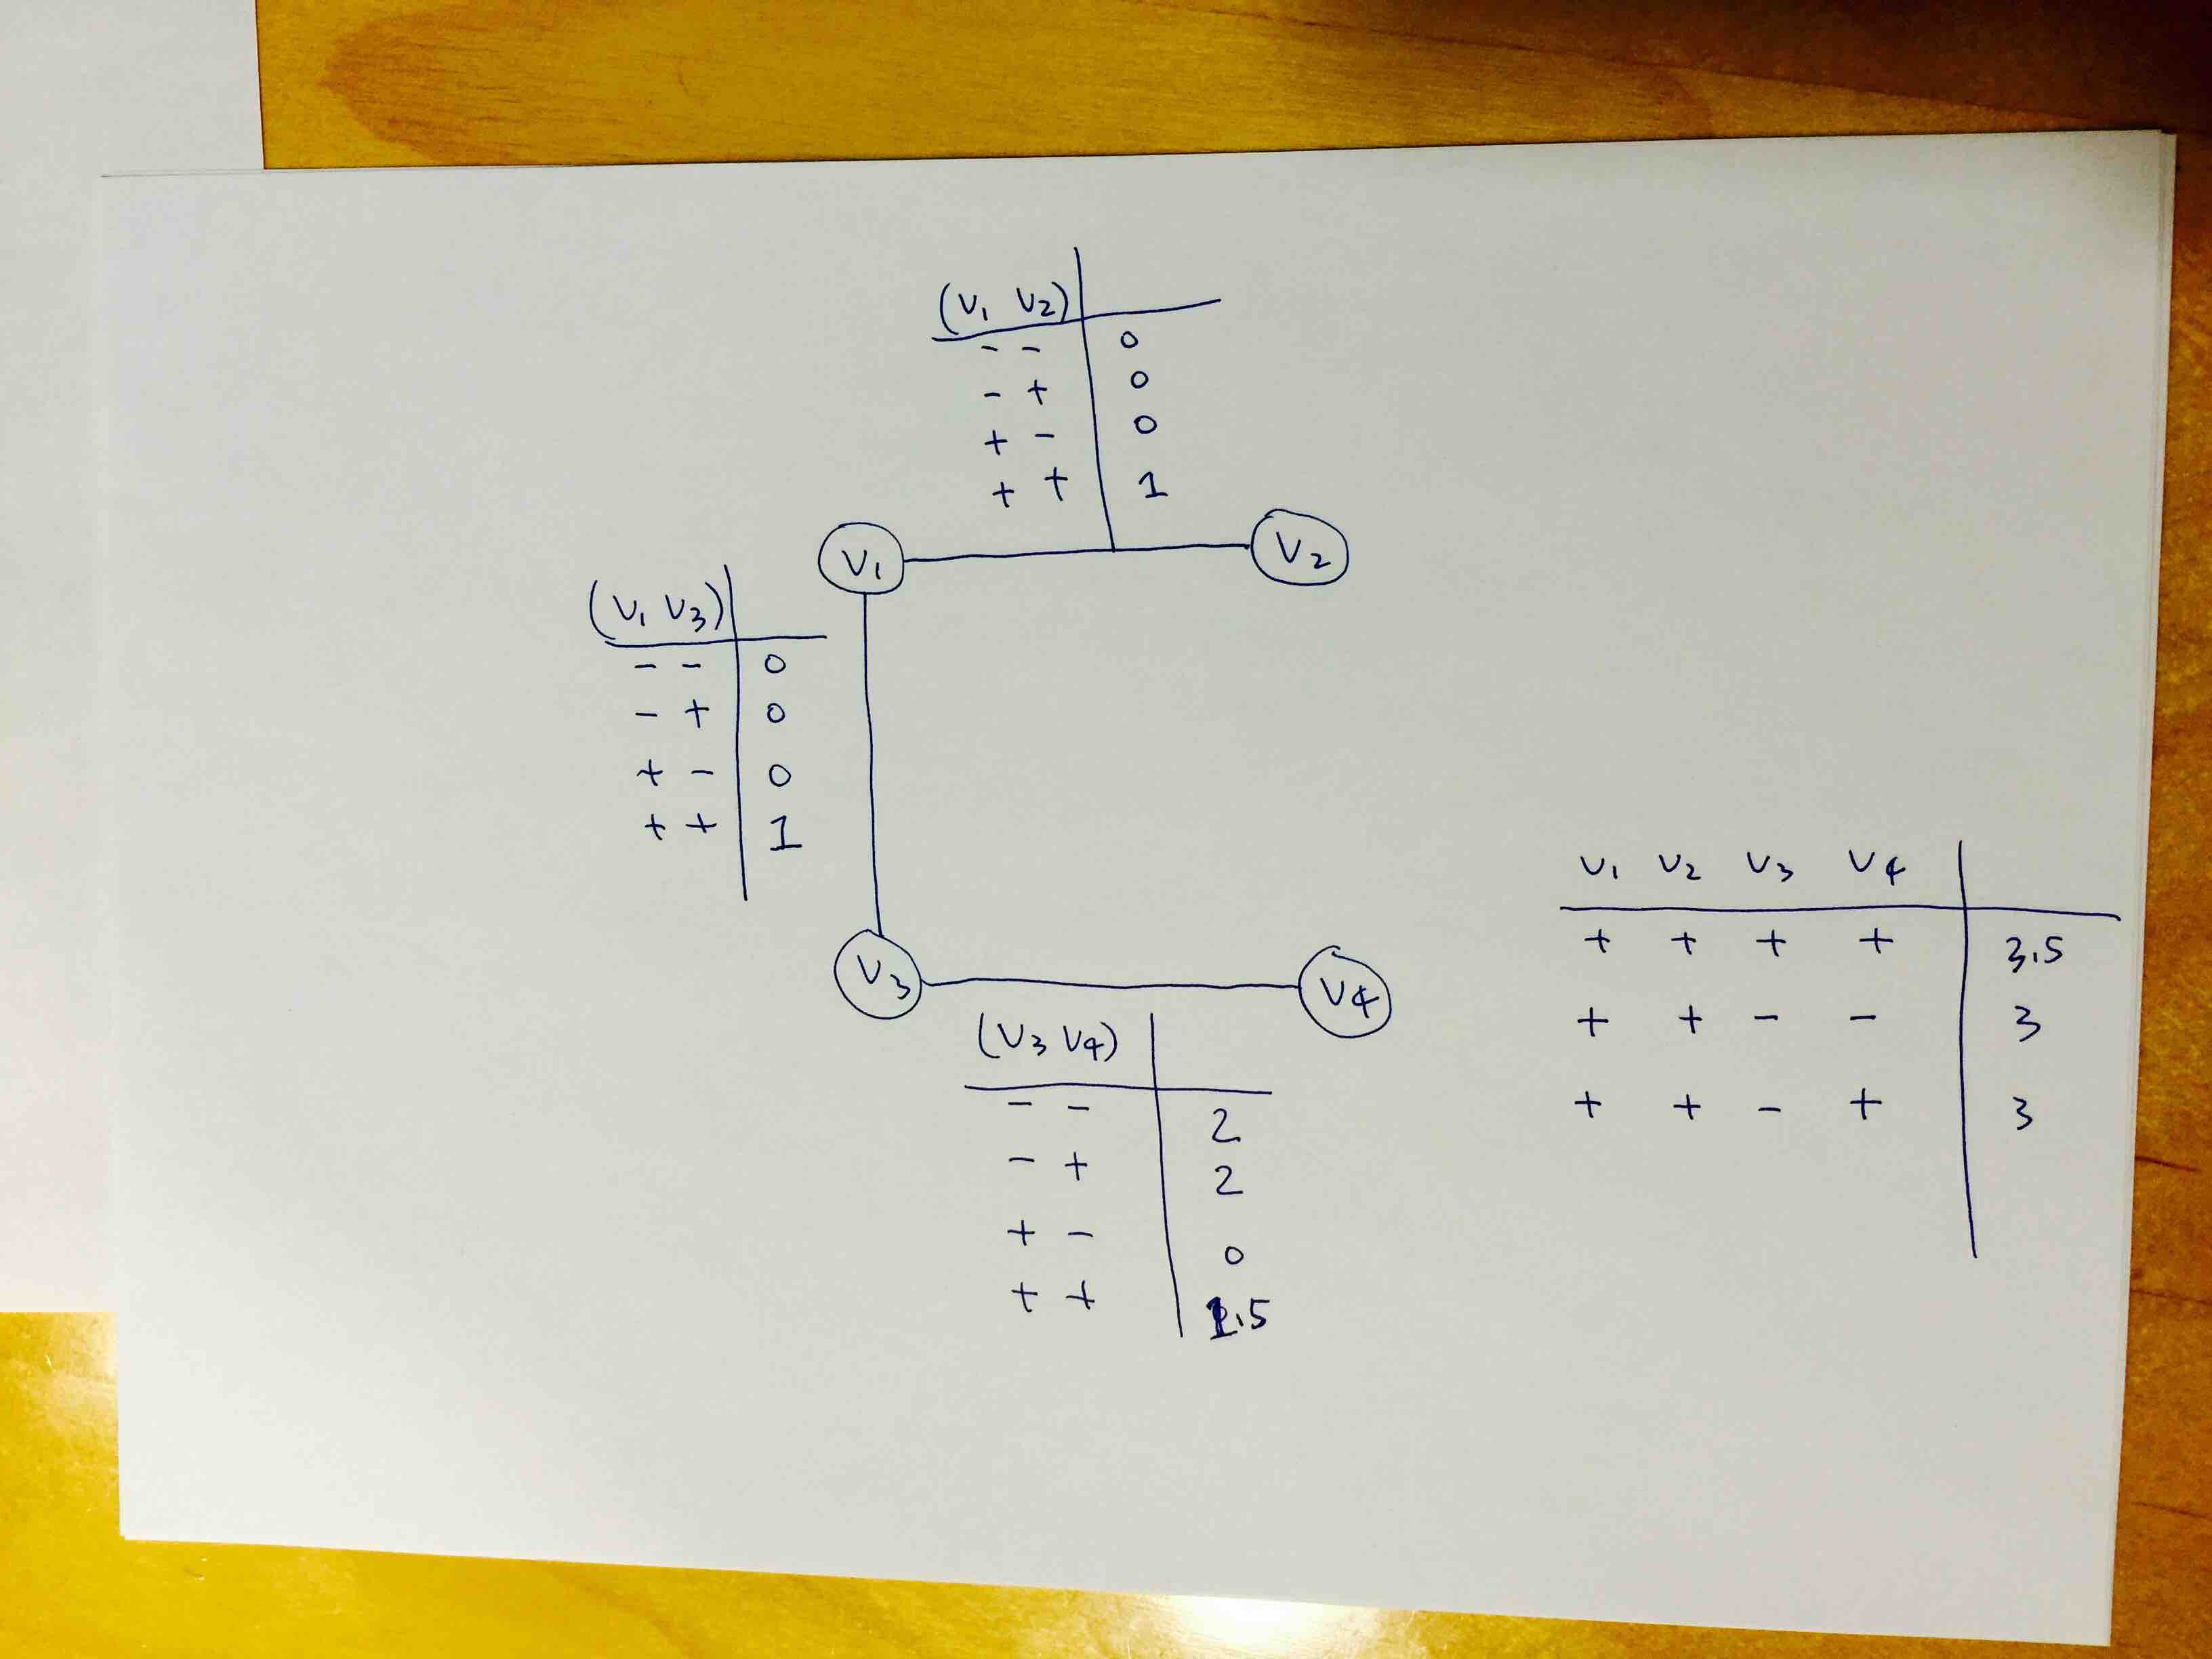 (V1 V2)
- - 0
- + 0
+ - 0
+ + 1
V1 V2
(V1 V3)
- - 0
- + 0
+ - 0
+ + 1
V3 V4
(V3 V4)
- - 2
- + 2
+ - 0
+ + 1.5
V1 V2 V3 V4
+ + + + 3.5
+ + - - 3
+ + - + 3